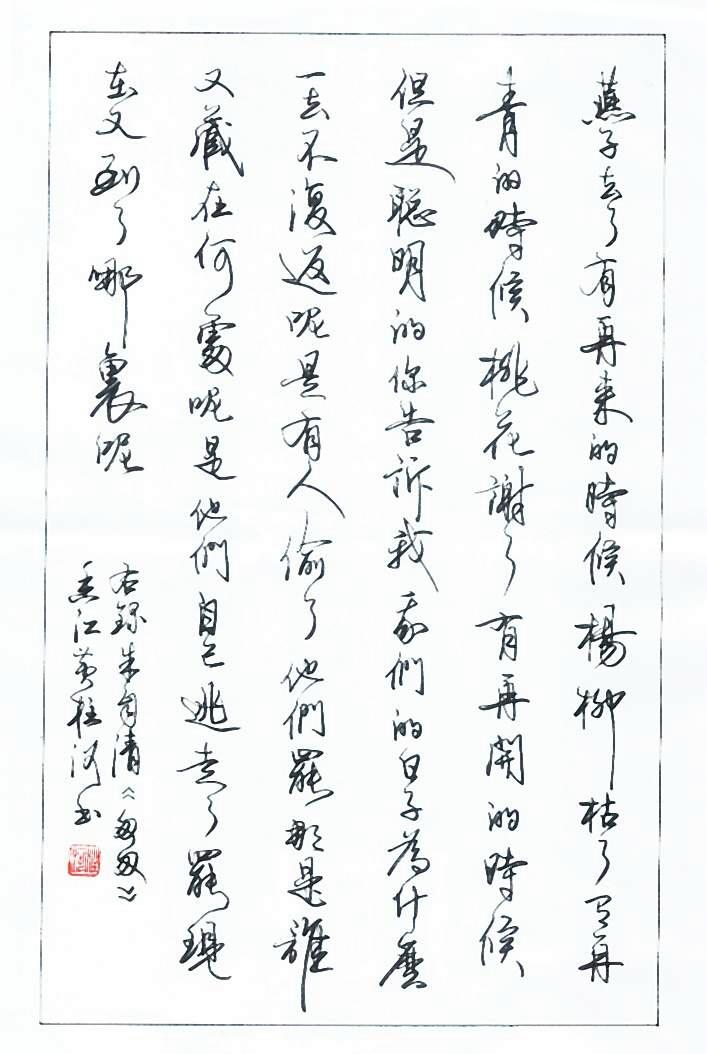 燕子去了有再來的時候楊柳枯了有再
青的時候桃花謝了有再開的時候
但是聰明的你告訴我我們的日子為什麼
一去不復返呢是有人偷了他們罷那是誰
又藏在何處呢是他們自己逃走了罷現
在又到了哪裏呢
右錄朱自清《匆匆》
香江黃桂河書